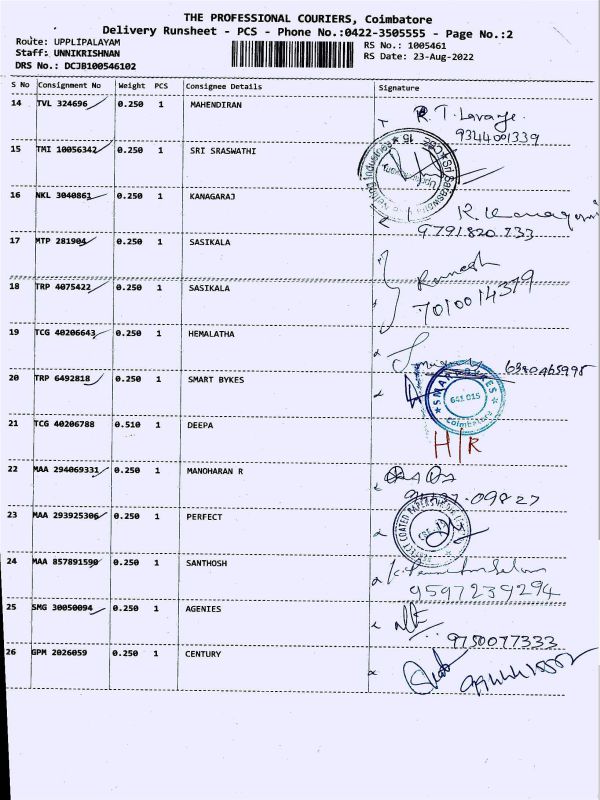 THE PROFESSIONAL COURIERS, Coimbatore
Delivery Runsheet - PCS - Phone No.:0422-3505555 - Page No.:2
Route: UPPLIPALAYAM
Staff: UNNIKRISHNAN
DRS No.: DCJB100546102
RS No.: 1005461
RS Date: 23-Aug-2022
S No Consignment No Weight PCS Consignee Details Signature
14 TVL 324696 0.250 1 MAHENDIRAN
R.T.
9344001339
15 TMI 10056342 0.250 1 SRI SRASWATHI
16 NKL 3040861 0.250 1 KANAGARAJ
9791820733
17 MTP 281904 0.250 1 SASIKALA
Ramesh
18 TRP 4075422 0.250 1 SASIKALA
7010014379
19 TCG 40206643 0.250 1 HEMALATHA
20 TRP 6492818 0.250 1 SMART BYKES
641 015
Coimbatore
21 TCG 40206788 0.510 1 DEEPA
H/R
22 MAA 294069331 0.250 1 MANOHARAN R
-09827
23 MAA 293925306 0.250 1 PERFECT
24 MAA 857891590 0.250 1 SANTHOSH
9597239294
25 SMG 30050094 0.250 1 AGENIES
9750077333
26 GPM 2026059 0.250 1 CENTURY